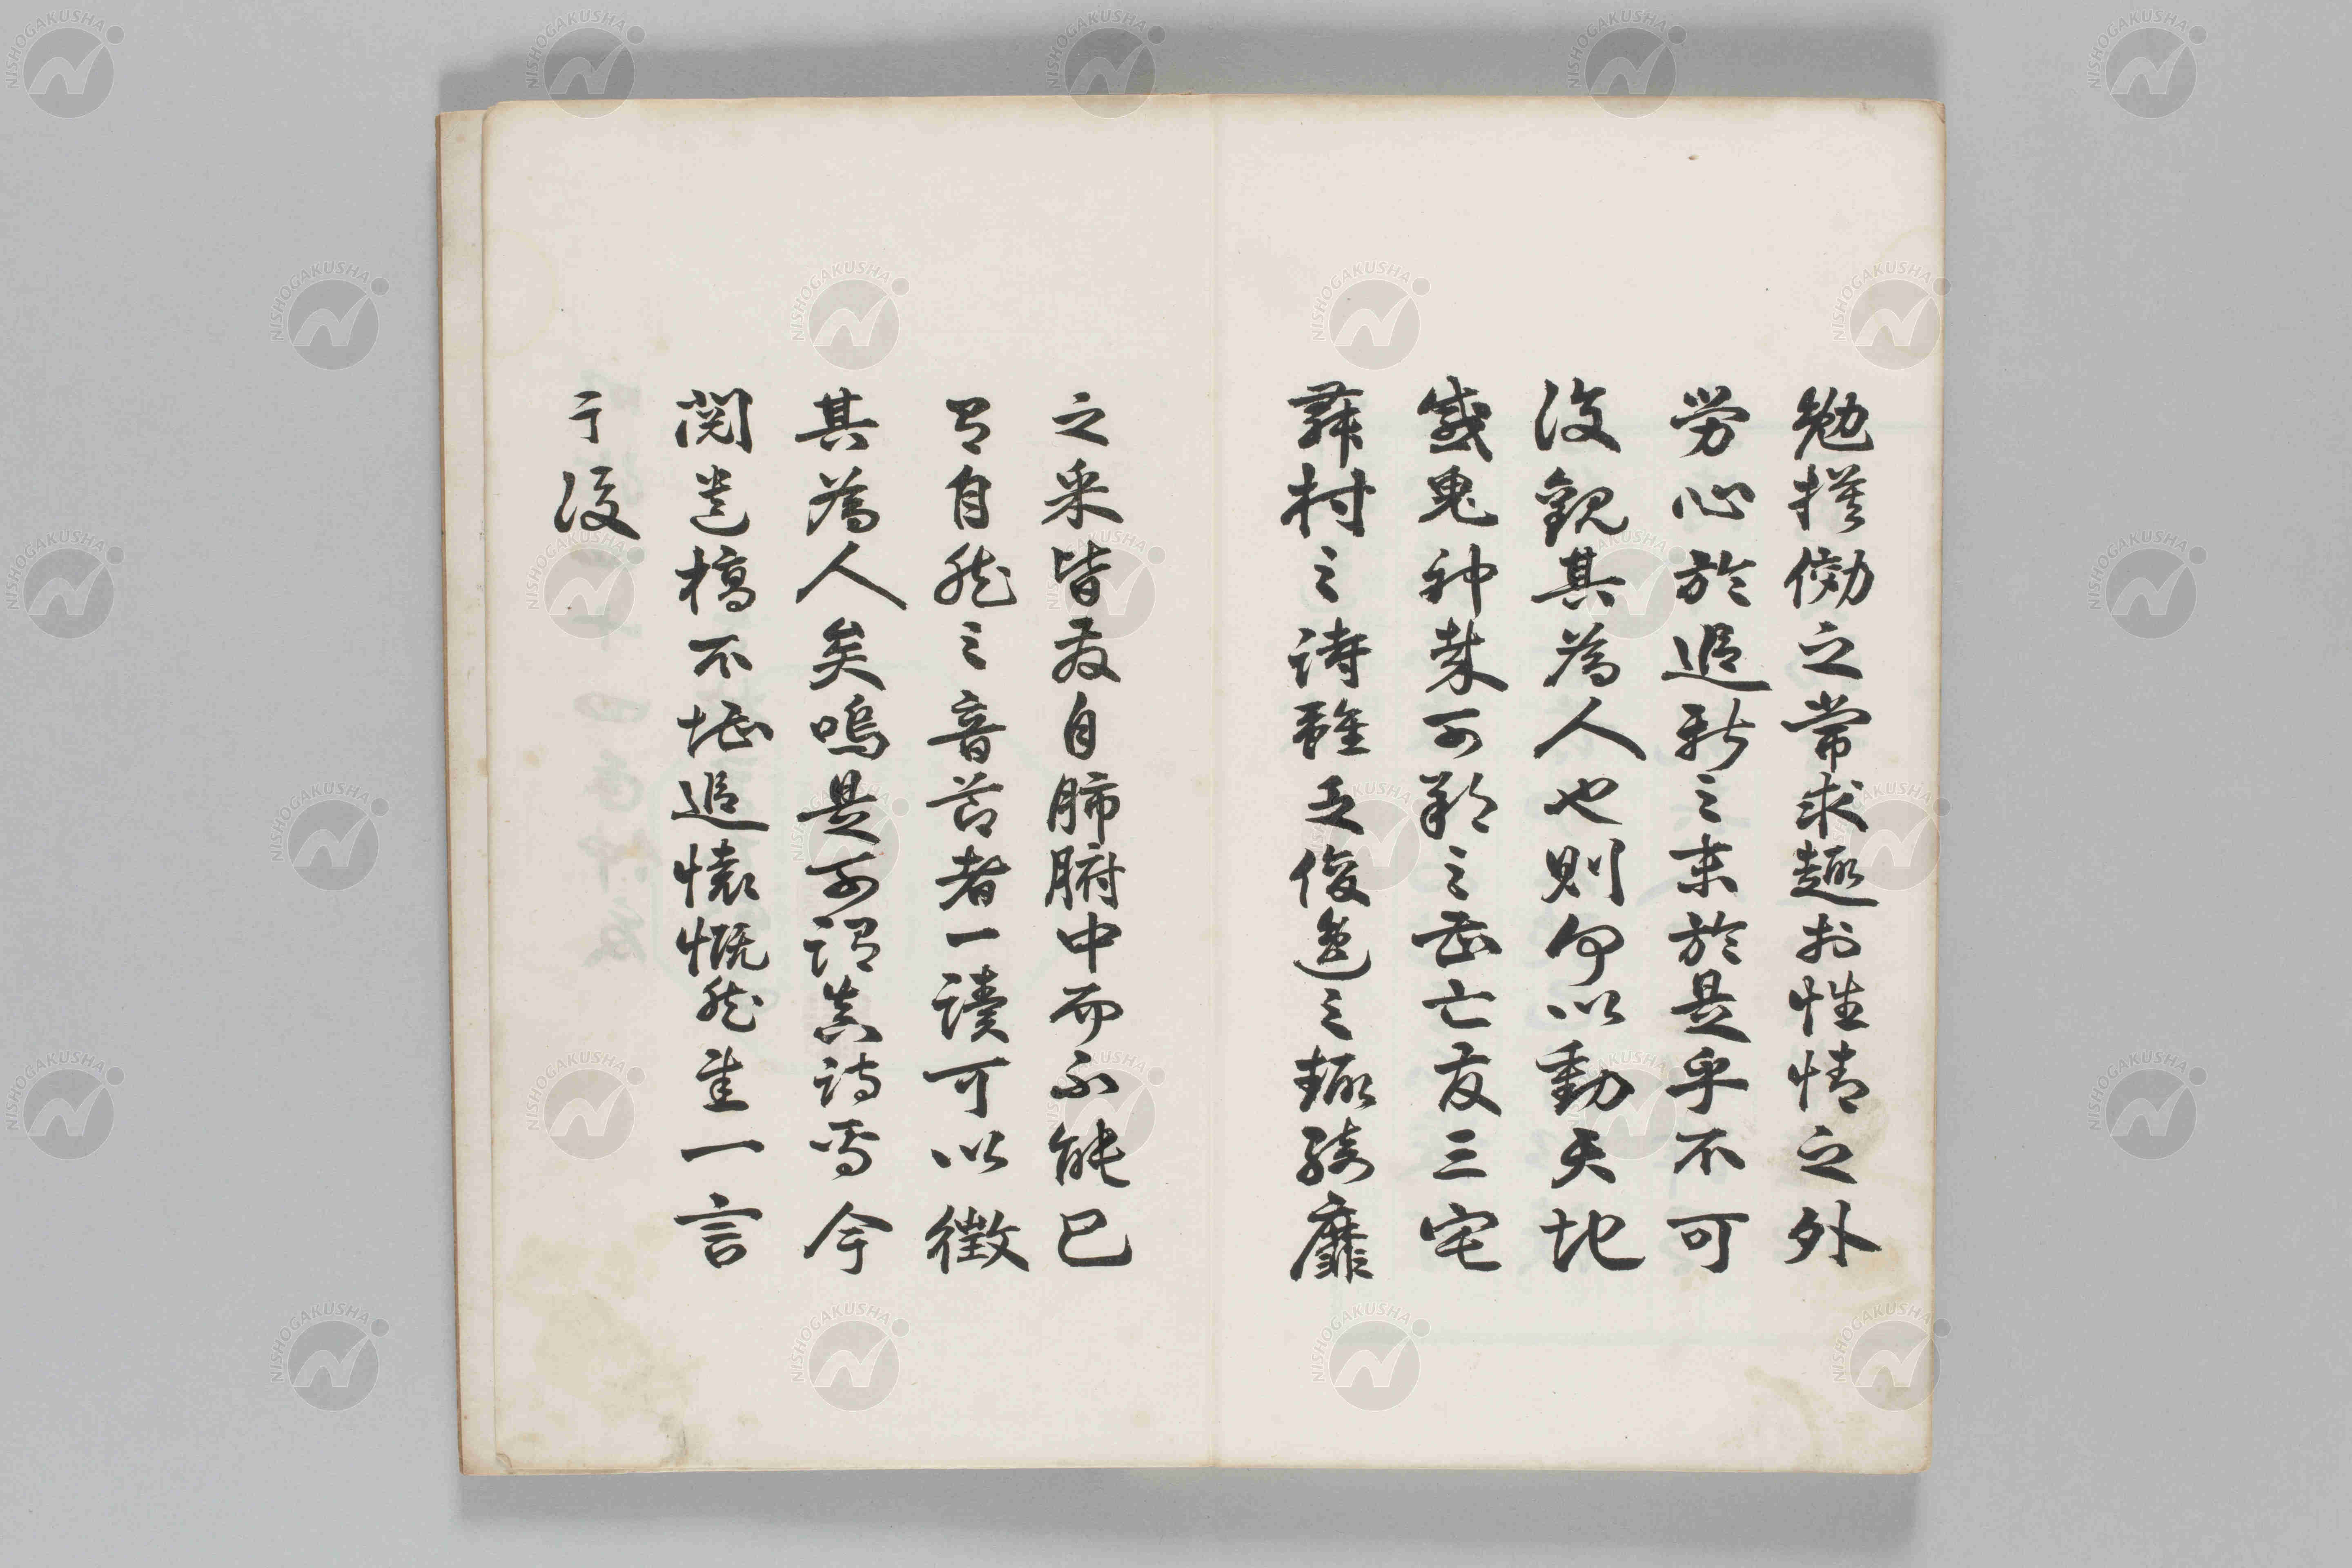 勉擬倣之常求趣於性情之外
労心於追新之末於是乎不可
復観其為人也則何以動天地
感鬼神哉可歎之甚亡友三宅
舜村之詩雖乏俊逸之趣綺靡
之采皆發自肺腑中而不能已
有自然之音節者一讀可以徴
其為人矣嗚是可謂真詩焉今
閲遺稿不堪追懐慨然書一言
于後
NISHOGAKUSHA